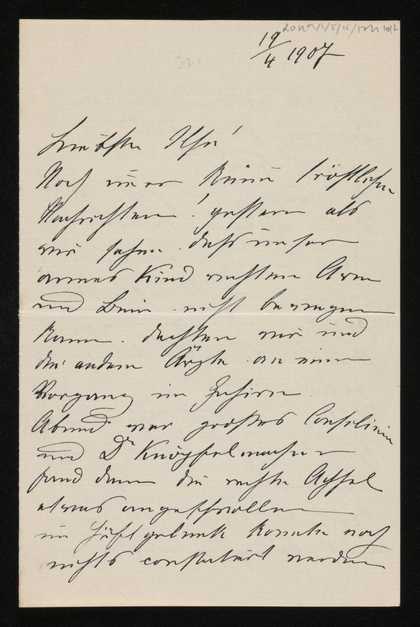 19/4 1907
Liebste Ilse!
Noch immer keine tröstlichen
Nachrichten! gestern als
wir sahen dass unser
armes Kind rechten Arm
und Bein nicht bewegen
kann. dachten wir und
die andern Ärzte an einen
Vorgang im Gehirn.
Abend war grosses Consilium
und Dr Knöpfelmacher
fand dann die rechte Achsel
etwas angeschwollen
im Hüftgelenk konnte noch
nichts constatirt werden